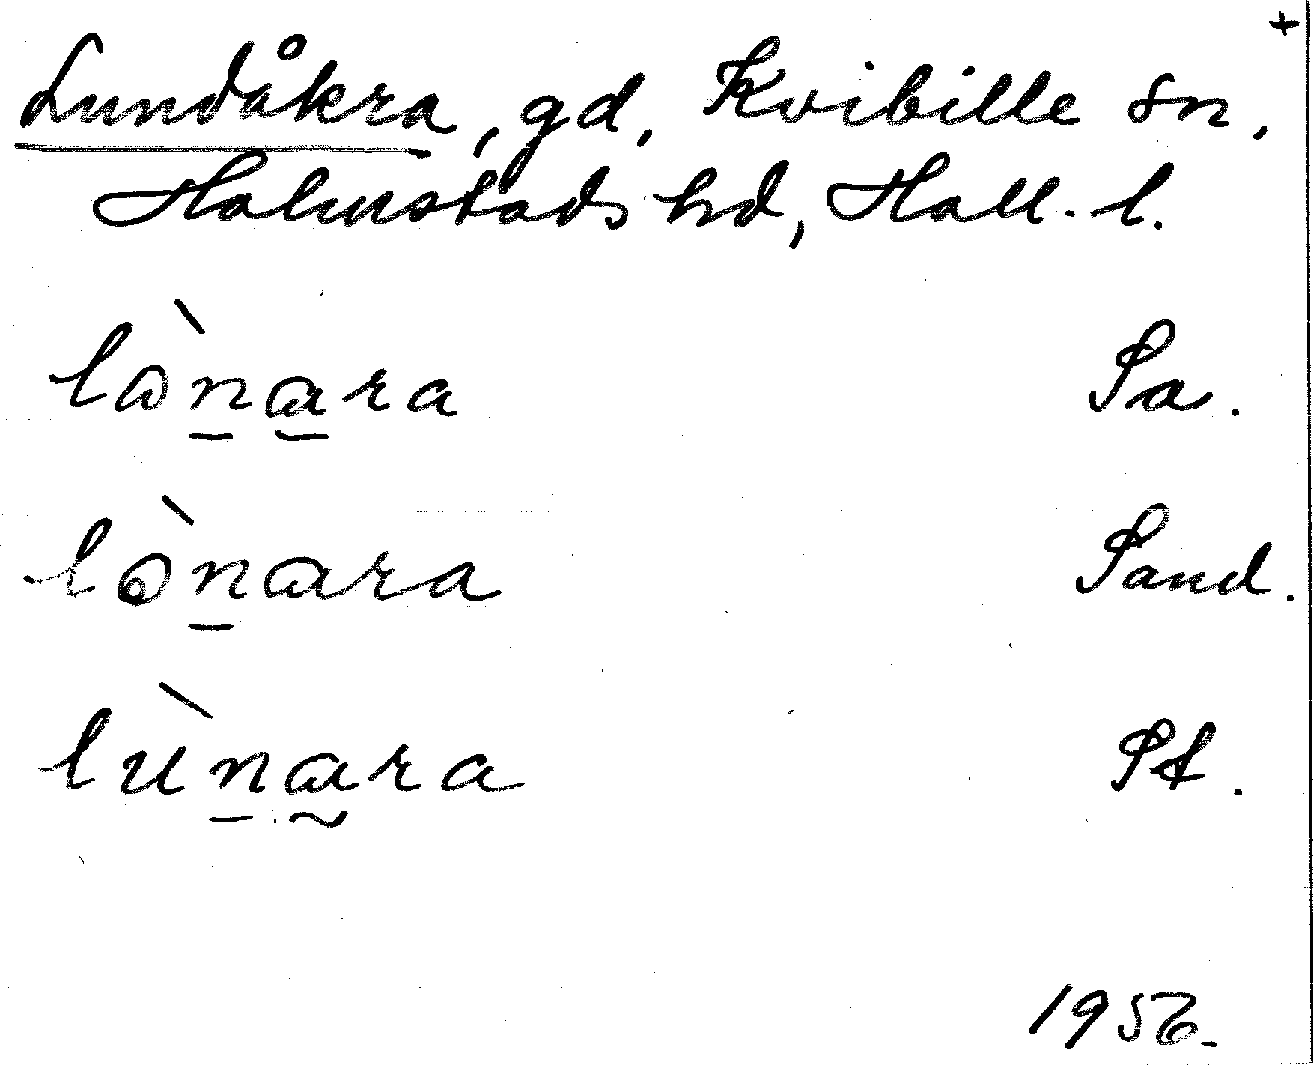 +
Lundåkra, gd, Kvibille sn,
Halmstads hd, Hall. l.
lὼnara Sa.
lònara Sand.
lùnara Pf.
1956.